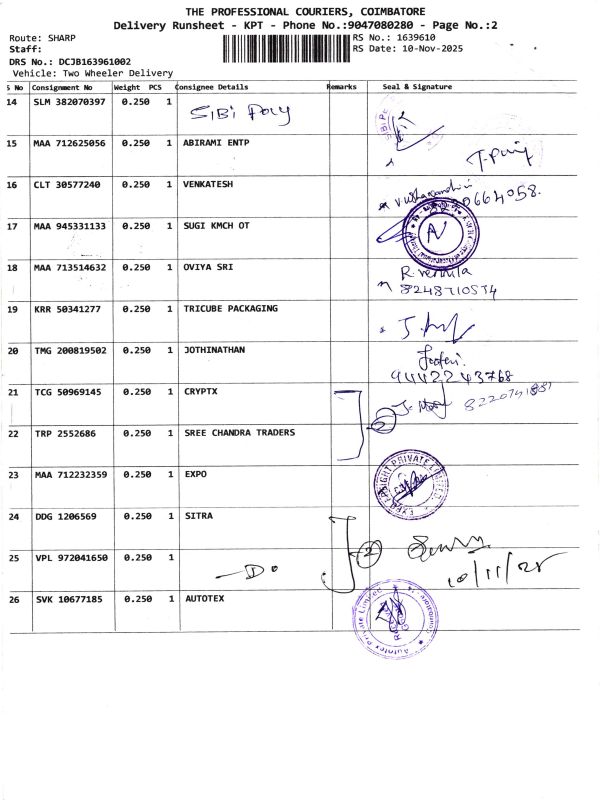 THE PROFESSIONAL COURIERS, COIMBATORE
Delivery Runsheet - KPT - Phone No.:9047080280 - Page No.:2
Route: SHARP RS No.: 1639610
Staff: RS Date: 10-Nov-2025
DRS No.: DCJB163961002
Vehicle: Two Wheeler Delivery
S No Consignment No Weight PCS Consignee Details Remarks Seal & Signature
14 SLM 382070397 0.250 1 SIBI Poly
15 MAA 712625056 0.250 1 ABIRAMI ENTP
16 CLT 30577240 0.250 1 VENKATESH
17 MAA 945331133 0.250 1 SUGI KMCH OT
18 MAA 713514632 0.250 1 OVIYA SRI
19 KRR 50341277 0.250 1 TRICUBE PACKAGING
20 TMG 200819502 0.250 1 JOTHINATHAN
9442243768
21 TCG 50969145 0.250 1 CRYPTX
2
22 TRP 2552686 0.250 1 SREE CHANDRA TRADERS
23 MAA 712232359 0.250 1 EXPO
24 DDG 1206569 0.250 1 SITRA
2
25 VPL 972041650 0.250 1 —Do
10/11/25
26 SVK 10677185 0.250 1 AUTOTEX
Autotex Private Limited
Coimbatore